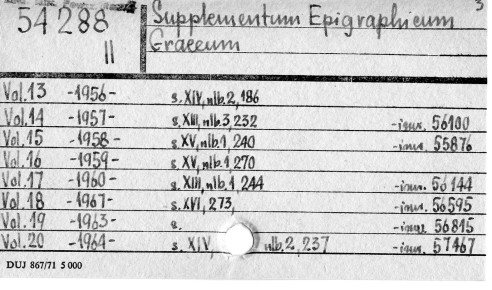 3
54288 Supplementum Epigraphicum
II Graecum
Vol.13 -1956- s. XIV, nlb. 2, 186
Vol.14 -1957- s. XIII, nlb. 3, 232 -inw. 56100
Vol.15 -1958- s. XV, nlb. 1, 240 -inw. 55876
Vol.16 -1959- s. XV, nlb. 1 270
Vol.17 -1960- s. XIII, nlb. 1, 244 -inw. 56144
Vol.18 -1967- s. XVI, 273, -inw. 56595
Vol.19 -1963- s. -inw. 56815
Vol.20 -1964- s. XIV, nlb. 2, 237 -inw. 57467
DUJ 867/71 5 000